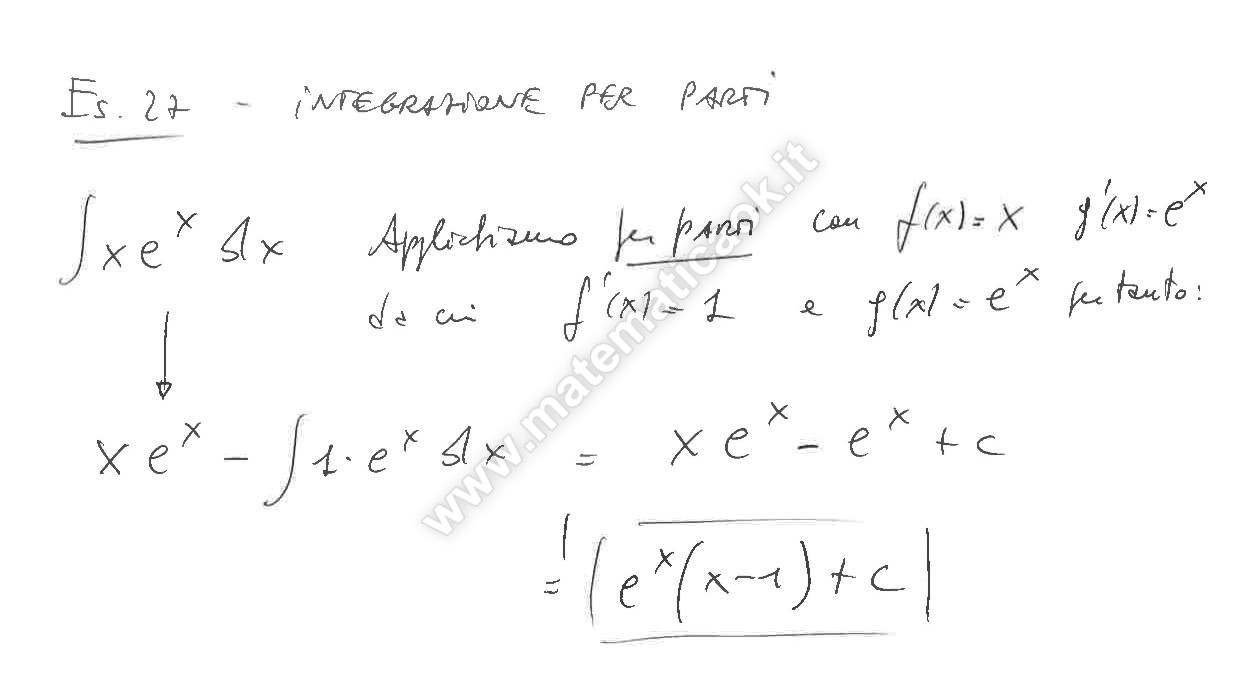 Es. 27 - INTEGRAZIONE PER PARTI
∫ x e^x dx Applichiamo per parti con f(x) = x g'(x) = e^x
da cui f'(x) = 1 e g(x) = e^x pertanto:
x e^x - ∫ 1· e^x dx = x e^x - e^x + c
= e^x (x-1) + c
www.matematicaok.it